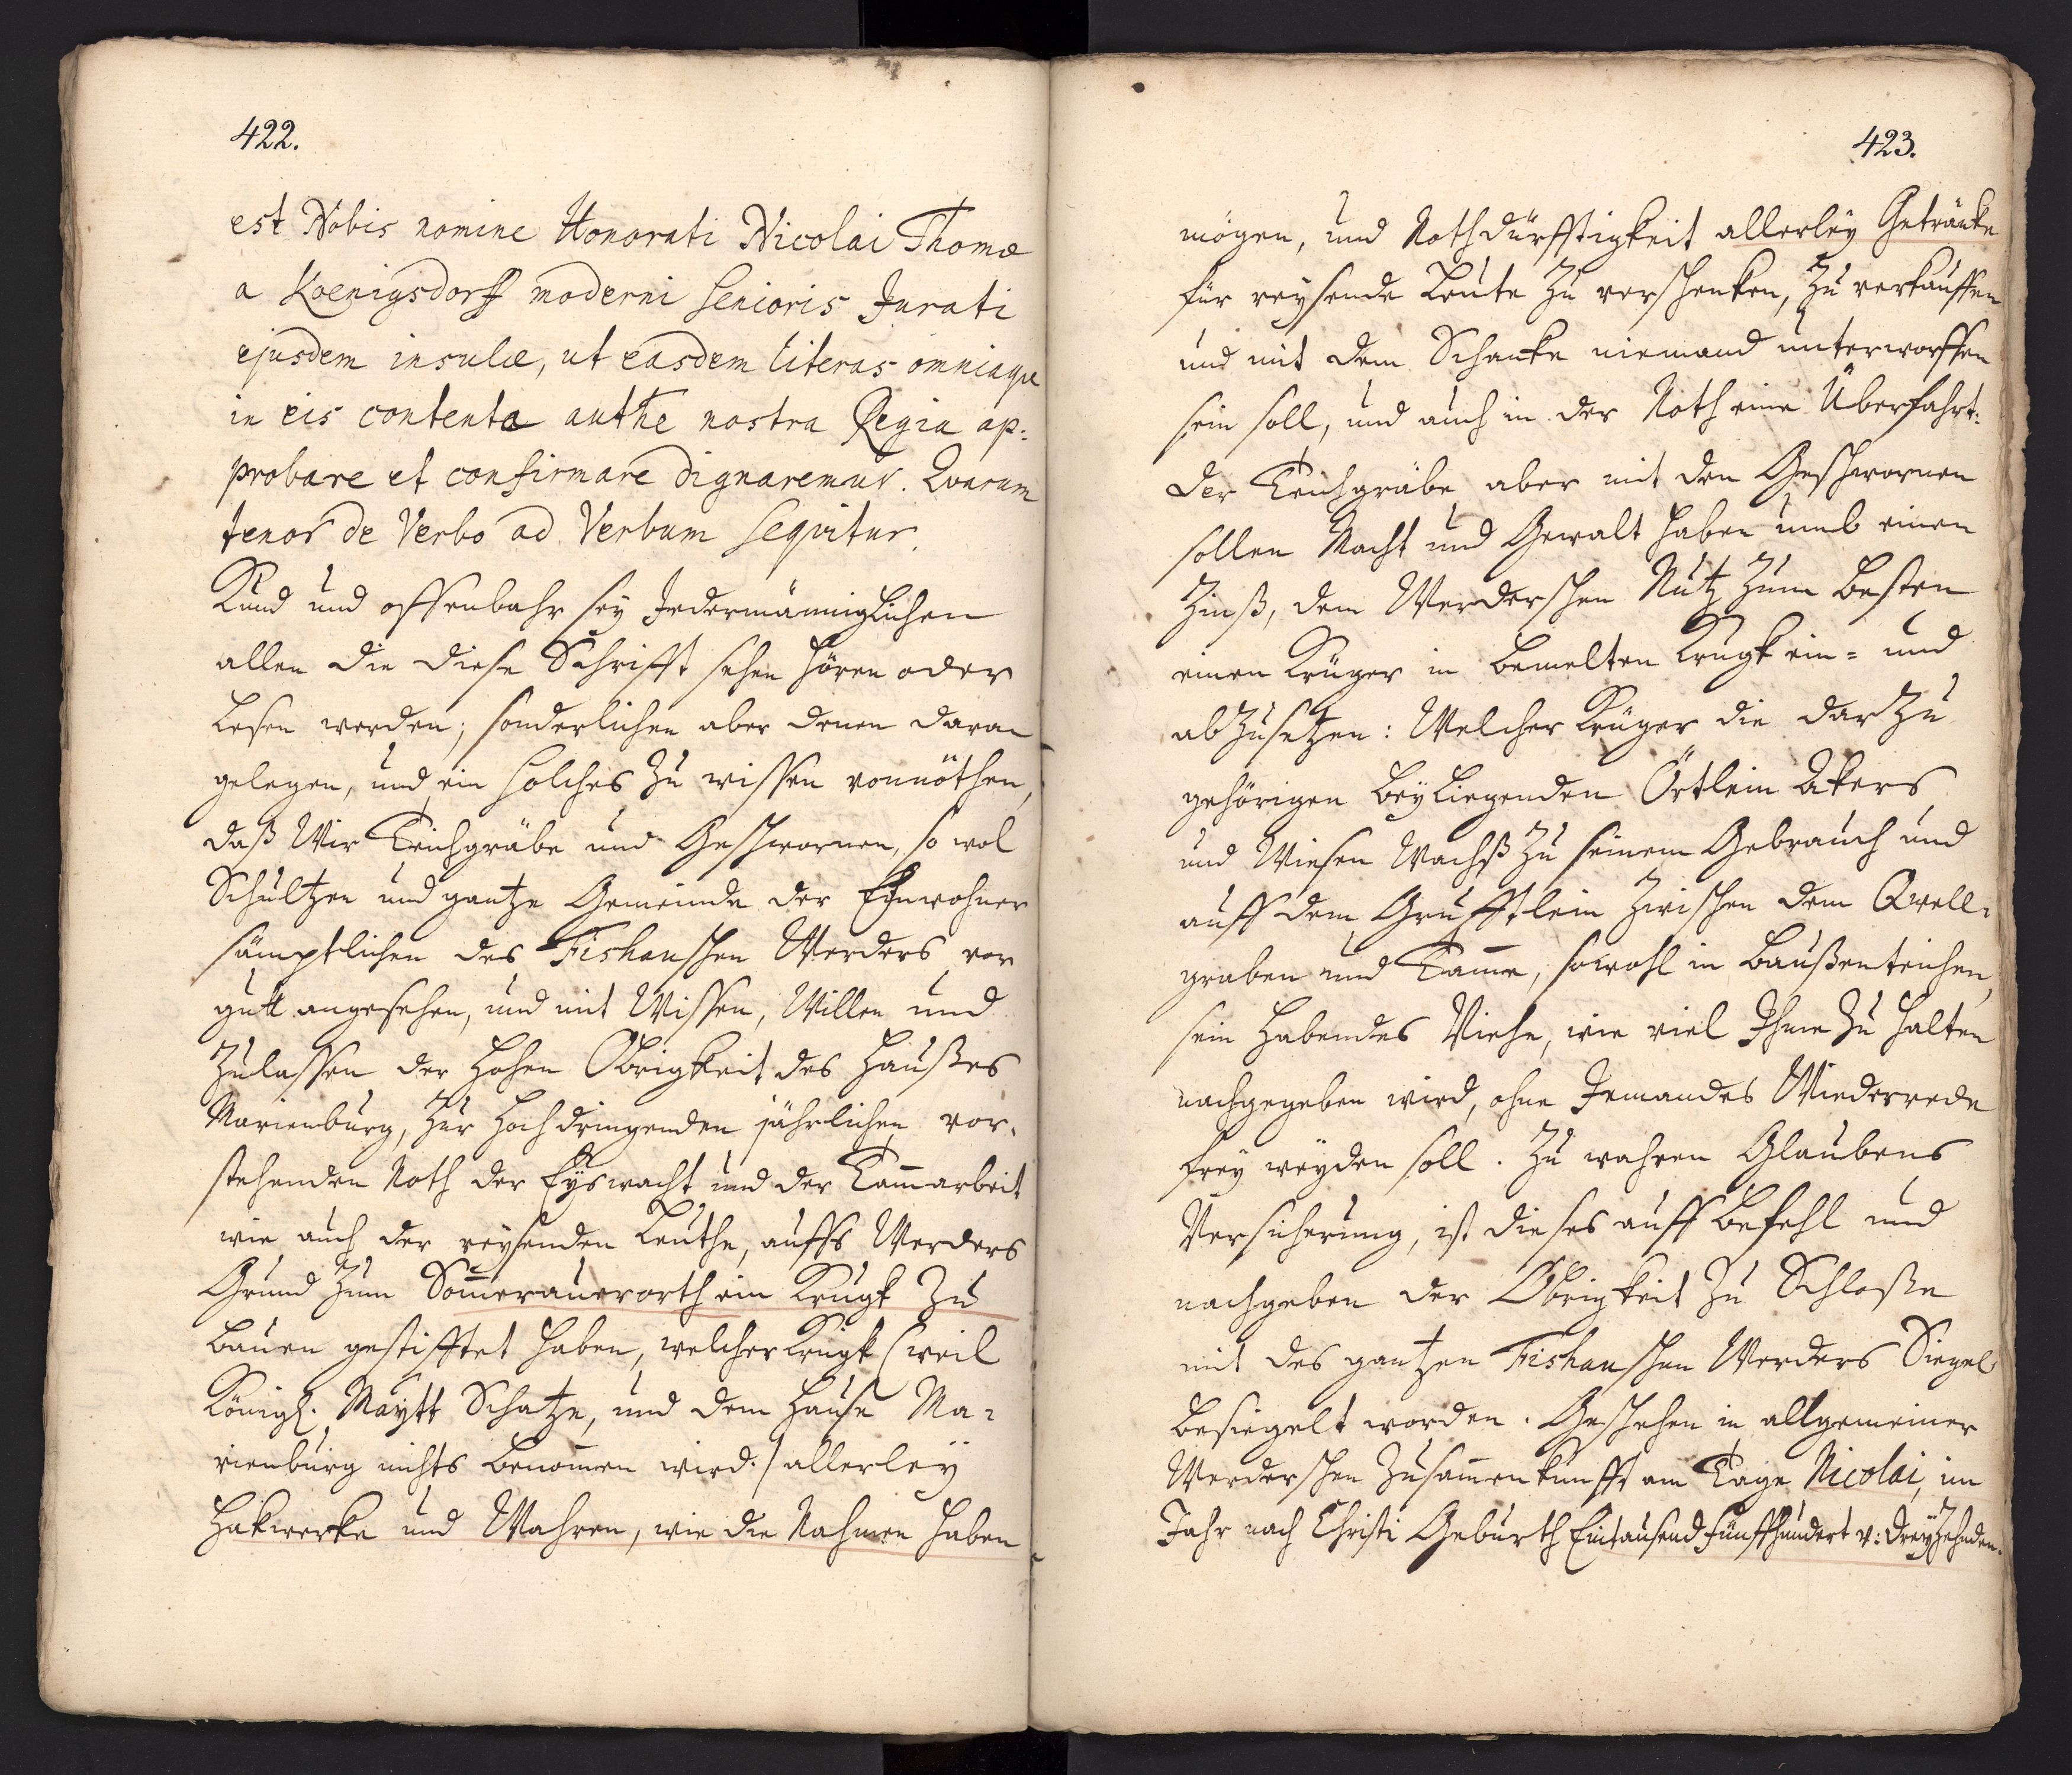 422.
est Nobis nomine Honorati Nicolai Thomæ
a Koenigsdorff moderni Senioris Jurati
ejusdem insulæ, ut easdem literas omniaque
in eis contenta authe nostra Regia ap:
probare et confirmare dignaremur. Quarum
tenor de Verbo ad Verbum sequitur.
Kund und offenbahr sey Jedermänniglichen
allen die diese Schrifft sehen hören oder
lesen werden, sonderlichen aber denen daran
gelegen, und ein solches zu wissen vonnöthen,
daß Wir Teichgräbe und Geschwornen, so wol
Schultzen und gantze Gemeinde der Einwohner
sämptlichen des Fishauschen Werders vor
gutt angesehen, und mit Wissen, Willen und
Zulassen der Hohen Obrigkeit des Haußes
Marienburg, zur hochdringenden jährlichen vor-
stehenden Noth der Eyswacht und der Tam̄arbeit
wie auch der reysenden Leuthe, auffs Werders
Grund zum Som̄erauerorth ein Krugk zu
bauen gestifftet haben, welcher Krugk (weil
Königl. Maytt Schatze, und dem Hause Ma-
rienburg nichts benom̄en wird.) allerley
Hakwerke und Wahren, wie die Nahmen haben
423.
mögen, und Nothdürfftigkeit allerley Getränke
für reysende Leute zu verschenken, zu verkauffen
und mit dem Schanke niemand unterworffen
sein soll, und auch in der Noth eine Überfahrt:
der Teichgräbe aber mit den Geschwornen
sollen Macht und Gewalt haben umb einen
Zinß, dem Werderschen Nutz zum besten
einen Krüger in bemelten Krugk ein- und
abzusetzen: Welcher Krüger die darzu
gehörigen beyliegenden Örtlein Akers
und Wiesen Wachß zu seinem Gebrauch und
auff dem Grufftlein zwischen dem Qwell-
graben und Tam̄e, sowohl in baußenteichen,
sein habendes Viehe, wie viel Ihme zu halten
nachgegeben wird, ohne Jemandes Wiederrede
frey weyden soll. Zu wahren Glaubens
Versicherung, ist dieses auff befehl und
nachgeben der Obrigkeit zu Schloße
mit des gantzen Fishauschen Werders Siegel
besiegelt worden. Geschehen in allgemeiner
Werderschen Zusam̄enkunfft am Tage Nicolai, im
Jahr nach Christi Geburth Eintausend Fünffhundert v: dreyzehnden.